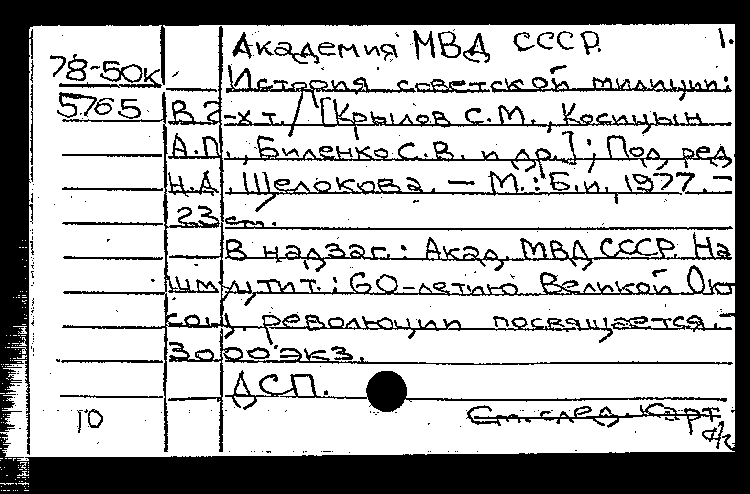 Академия МВД СССР. 1.
78-50к История советской милиции:
5765 В 2-х т. / [Крылов С.М., Косицын
А.П., Биленко С.В. и др.]; Под ред
Н.А. Щелокова. — М.: Б.и., 1977. —
23 см.
В надзаг.: Акад. МВД СССР. На
шмуцтит.: 60-летию Великой Окт
соц. революции посвящается. —
3000 экз.
ДСП.
10 См. след. карт.